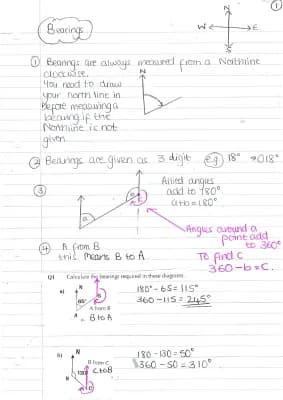 ①
Bearings
N
W E
S
① Bearings are always measured from a Northline
clockwise.
You need to draw
your north line in
before measuring a
bearing if the
Northline is not
given.
N
② Bearings are given as 3 digit eg 18° → 018°
③
a
b
c
Allied angles
add to 180°
a+b=180°
Angles around a
point add
to 360°
To find c
360-b=c.
④ A from B
this means B to A
Q1 Calculate the bearings required in these diagrams.
a)
N
65°
B
A
A from B
B to A
180°-65=115°
360-115=245°
b)
N
130°
B
C
B from C
C to B
180-130=50°
360-50=310°